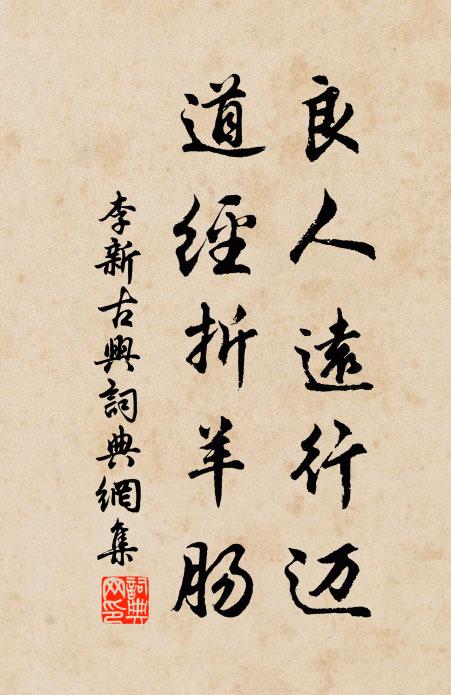 良人遠行迈
道經折羊肠
李新古興詞典網集
詞典網印